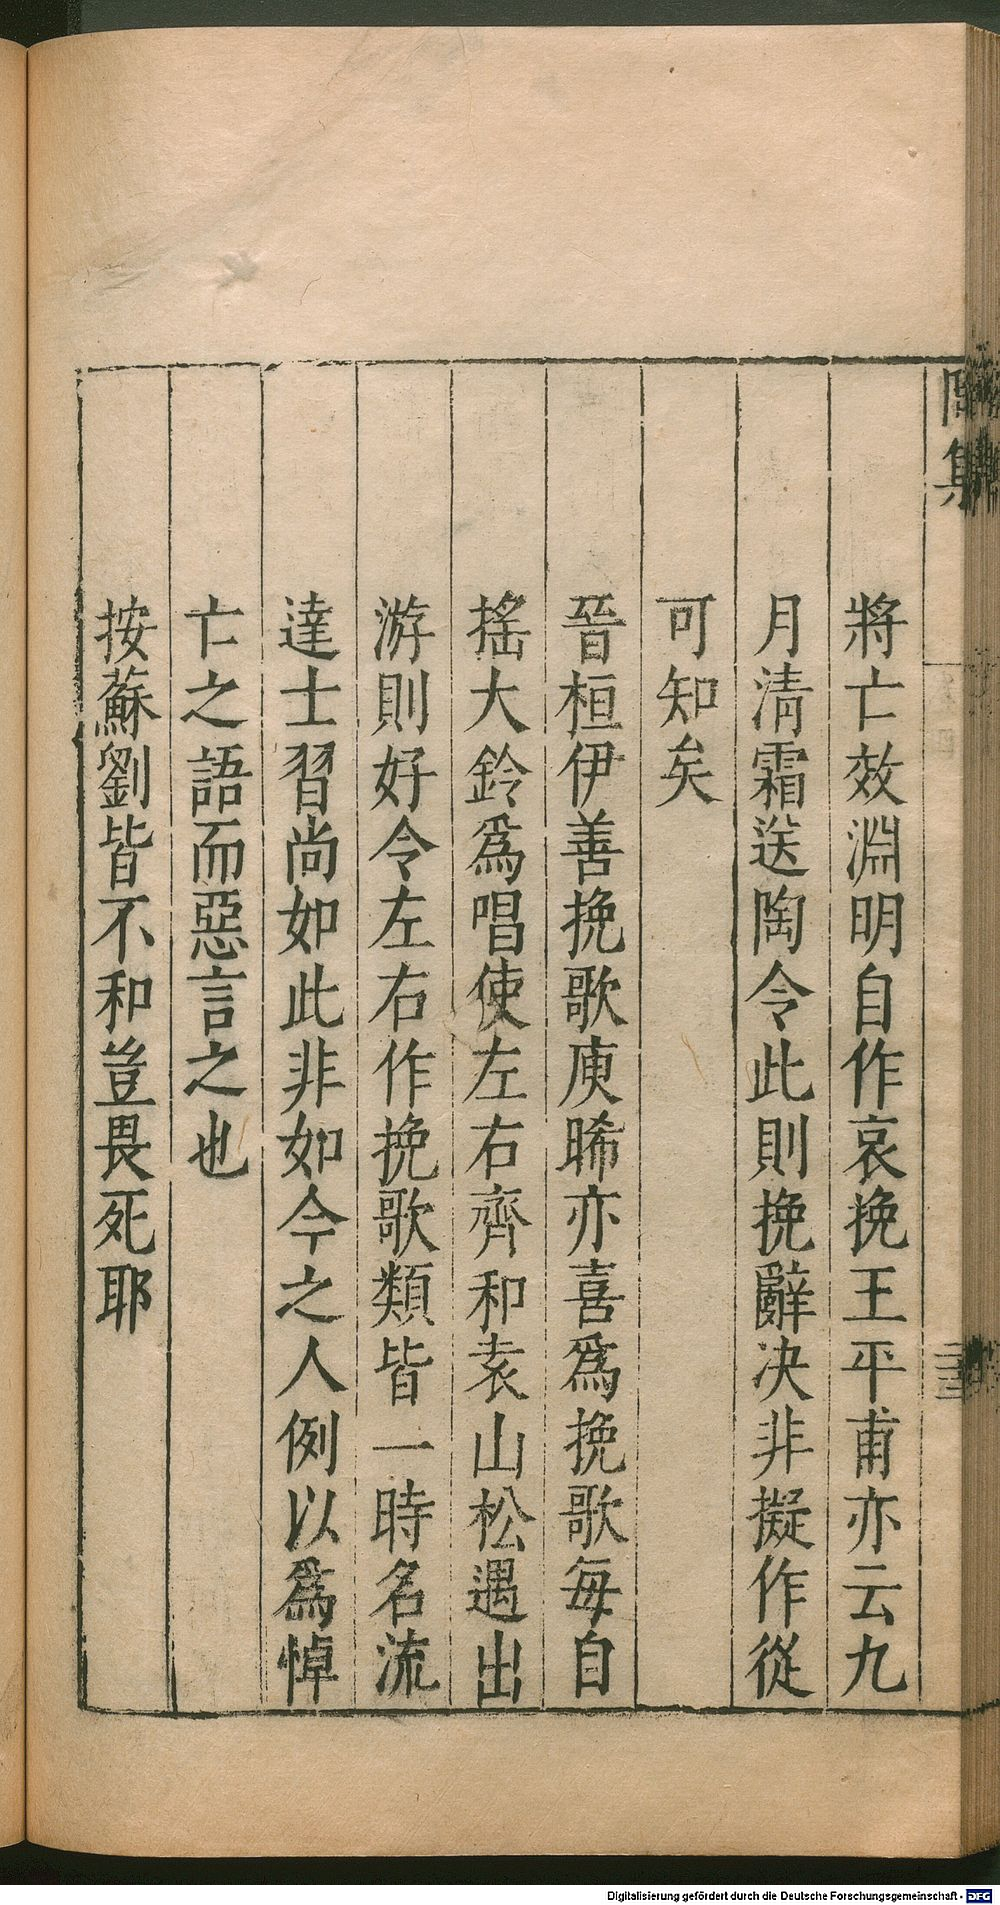 將亡效淵明自作哀挽王平甫亦云九
月清霜送陶令此則挽辭决非擬作從
可知矣
晉桓伊善挽歌庾晞亦喜爲挽歌每自
搖大鈴爲唱使左右齊和袁山松遇出
游則好令左右作挽歌類皆一時名流
達士習尚如此非如今之人例以爲悼
亡之語而惡言之也
按蘇劉皆不和豈畏死耶
Digitalisierung gefördert durch die Deutsche Forschungsgemeinschaft - DFG